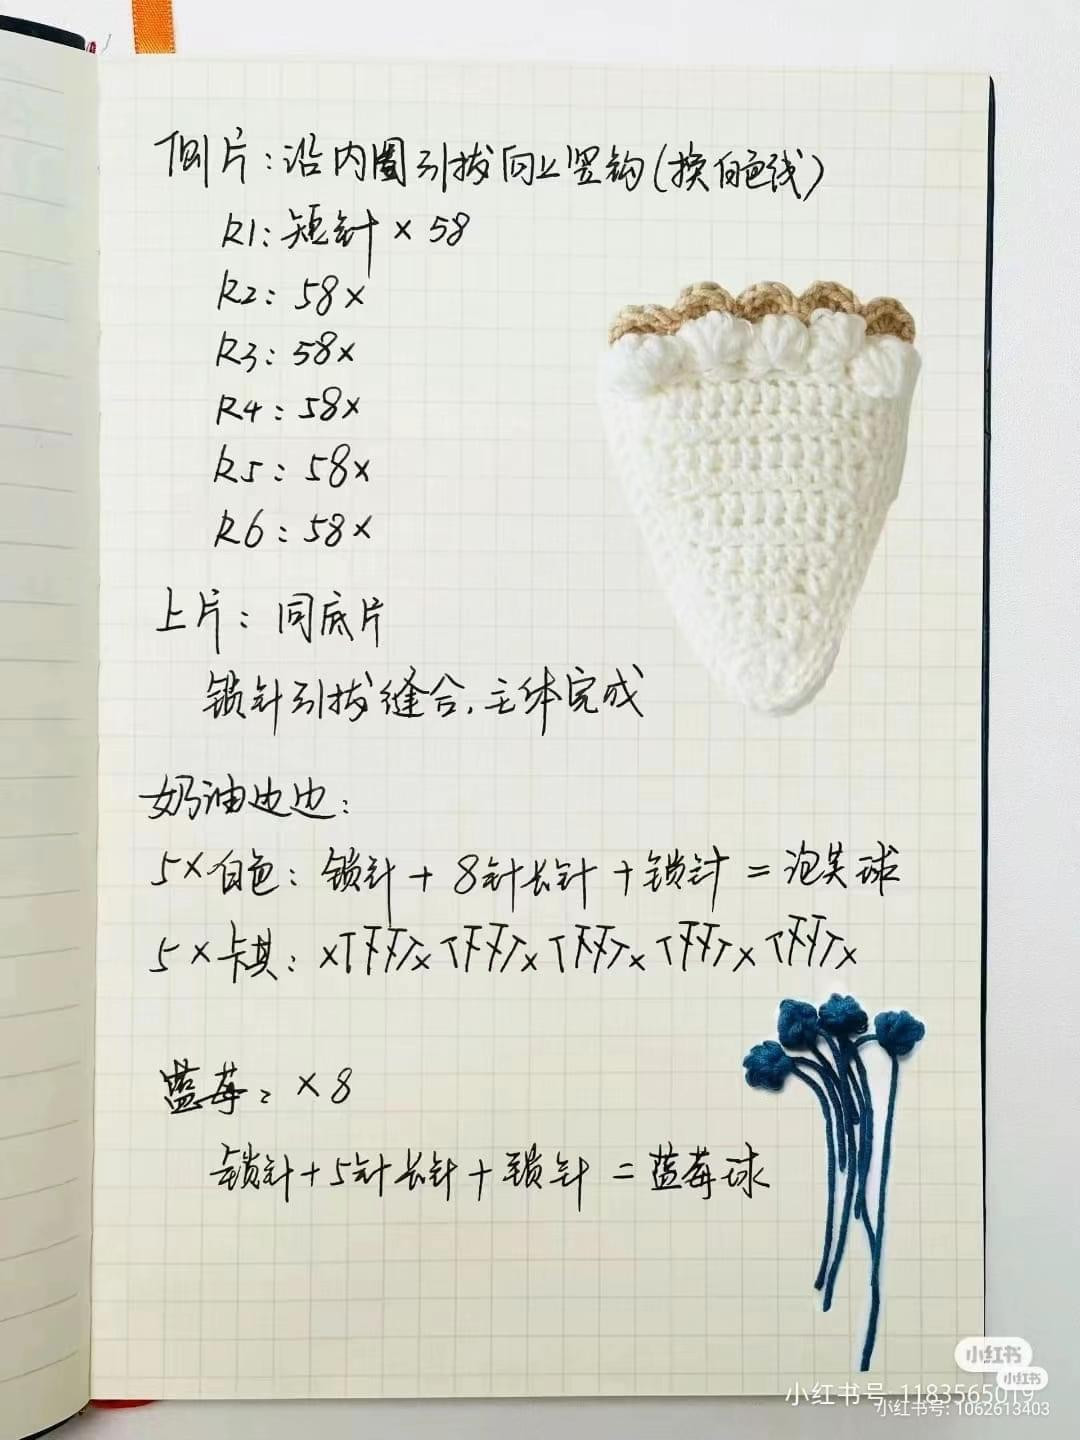 侧片：沿内圈引拔向上竖钩(换白色线)
R1：短针×58
R2：58×
R3：58×
R4：58×
R5：58×
R6：58×
上片：同底片
锁针引拔缝合，主体完成
奶油边边：
5×白色：锁针+8针长针+锁针=泡芙球
5×卡其：
蓝莓：×8
锁针+5针长针+锁针=蓝莓球
小红书
小红书
小红书号: 1183565019
小红书号: 1062613403